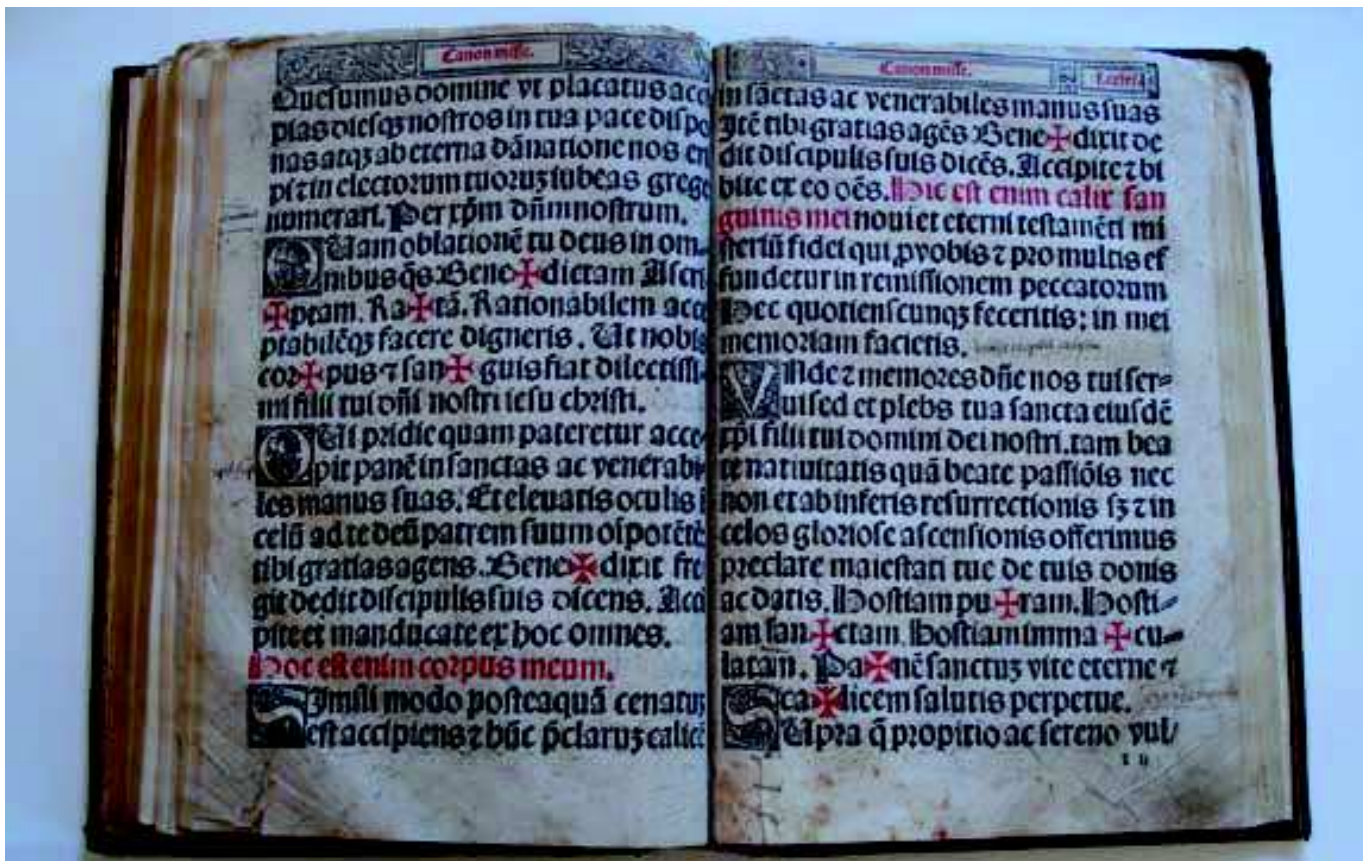 Canon misse.
Quesumus domine vt placatus acci
pias diesqꝫ nostros in tua pace dispo
nas atqꝫ ab eterna dānatione nos eri
pi ⁊ in electorum tuoruꝫ iubeas grege
numerari. Per xp̄m dn̄m nostrum.
QUam oblationē tu deus in om
nibus q̄s. Bene✠dictam Ascri
✠ptam. Ra✠tā. Rationabilem acce
ptabilēqꝫ facere digneris. Ut nobis
cor✠pus ⁊ san✠guis fiat dilectissi
mi filii tui dn̄i nostri iesu christi.
QUi pridie quam pateretur acce
pit panē in sanctas ac venerabi
les manus suas. Et eleuatis oculis i
celū ad te deū patrem suum oīpotētē
tibi gratias agens. Bene✠dixit fre
git dedit discipulis suis dicens. Acci
pite et manducate ex hoc omnes.
Hoc est enim corpus meum.
SImili modo posteaquā cenatuꝫ
est accipiens ⁊ hūc p̄claruꝫ calicē
Canon misse.
in sāctas ac venerabiles manus suas
Itē tibi gratias agēs Bene✠dixit de
dit discipulis suis dicēs. Accipite ⁊ bi
bite ex eo oēs. Hic est enim calix san
guinis mei noui et eterni testamēti mi
steriū fidei qui ꝓ vobis ⁊ pro multis ef
fundetur in remissionem peccatorum
Hec quotienscunqꝫ feceritis: in mei
memoriam facietis.
VNde ⁊ memores dn̄e nos tui ser⸗
ui sed et plebs tua sancta eiusdē
xp̄i filii tui domini dei nostri. tam bea
te natiuitatis quā beate passiōis nec
non et ab inferis resurrectionis sꝫ ⁊ in
celos gloriose ascensionis offerimus
preclare maiestati tue de tuis donis
ac datis. Hostiam pu✠ram. Hosti⸗
am san✠ctam. Hostiam imma✠cu⸗
latam. Pa✠nē sanctuꝫ vite eterne ⁊
ca✠licem salutis perpetue.
SUpra q̄ propitio ac sereno vul/